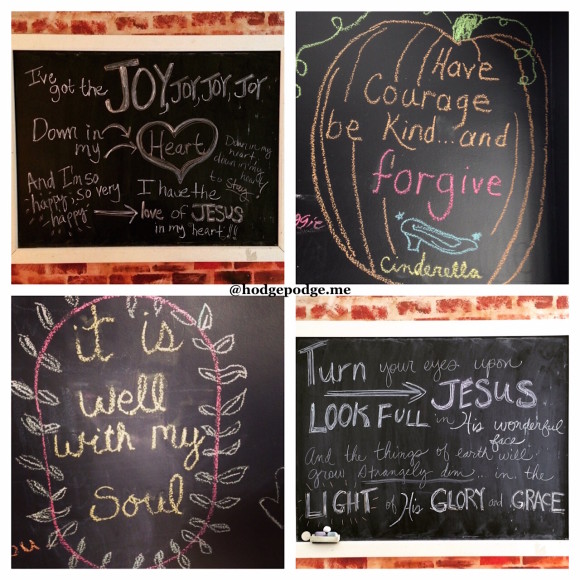 I've got the JOY, JOY, JOY, JOY
Down in my Heart
Down in my heart, down in my heart to Stay!
And I'm so happy, so very happy
I have the love of JESUS in my heart!!!
Have
Courage
be Kind... and
forgive
Cinderella
@hodgepodge.me
it is
well
with my
Soul
ou
Turn your eyes upon
JESUS
LOOK FULL in His wonderful face
And the things of earth will
grow strangely dim... in the
LIGHT of His GLORY and GRACE